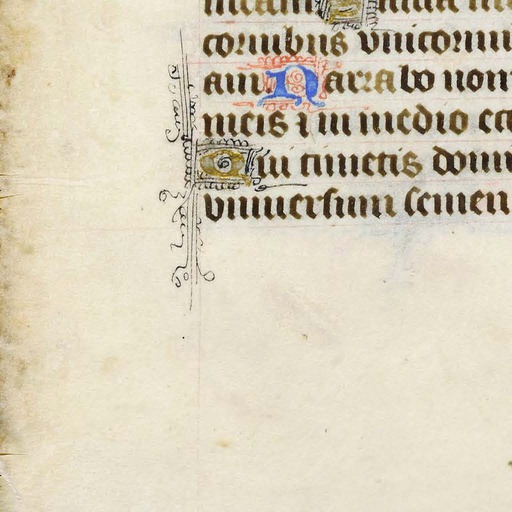 cornibus vnicorniu
am Narrabo nom
meis ⁊ in medio ecc
Qui timetis domi
vniuersum semen